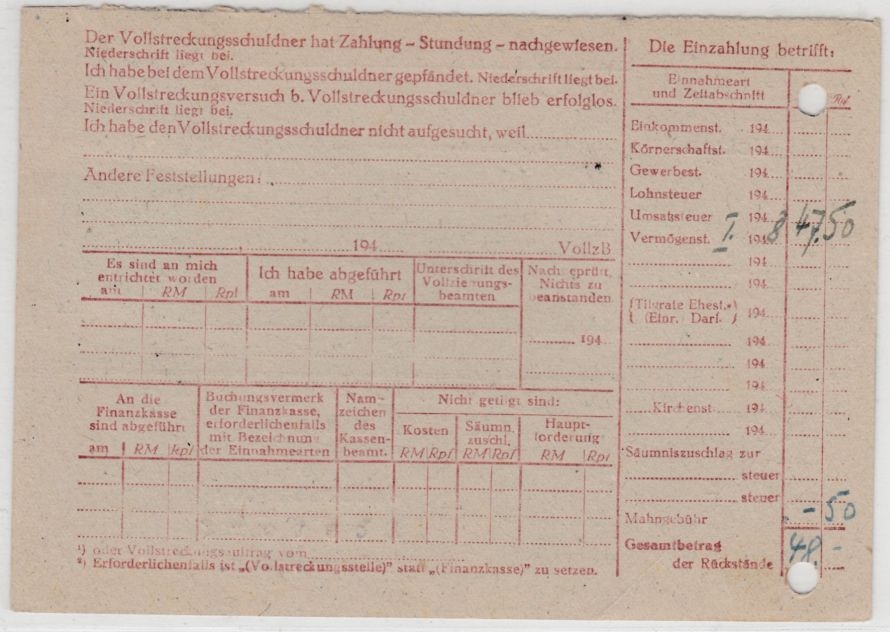 Der Vollstreckungsschuldner hat Zahlung – Stundung – nachgewiesen.
Niederschrift liegt bei.
Ich habe bei dem Vollstreckungsschuldner gepfändet. Niederschrift liegt bei.
Ein Vollstreckungsversuch b. Vollstreckungsschuldner blieb erfolglos.
Niederschrift liegt bei.
Ich habe den Vollstreckungsschuldner nicht aufgesucht, weil
Andere Feststellungen:
, 194 VollzB
Es sind an mich
entrichtet worden
am RM Rpf
Ich habe abgeführt
am RM Rpf
Unterschrift des
Vollziehungs-
beamten
Nachgeprüft.
Nichts zu
beanstanden
194
An die
Finanzkasse
sind abgeführt
am RM Rpf
Buchungsvermerk
der Finanzkasse,
erforderlichenfalls
mit Bezeichnung
der Einnahmearten
Nam-
zeichen
des
Kassen-
beamt.
Nicht getilgt sind:
Kosten
RM Rpf
Säumn.
zuschl.
RM Rpf
Haupt-
forderung
RM Rpf
¹) oder Vollstreckungsauftrag vom
²) Erforderlichenfalls ist „(Vollstreckungsstelle)" statt „(Finanzkasse)" zu setzen.
Die Einzahlung betrifft:
Einnahmeart
und Zeitabschnitt
Rpf
Einkommenst. 194
Körperschaftst. 194
Gewerbest. 194
Lohnsteuer 194
Umsatzsteuer I. 1948 47,50
Vermögenst. 194
194
194
(Tilgrate Ehest.*)
(Einr. Darl.) 194
194
194
194
Kirchenst 194
194
Säumniszuschlag zur
steuer
steuer
Mahngebühr -50
Gesamtbetrag
der Rückstände 48.-